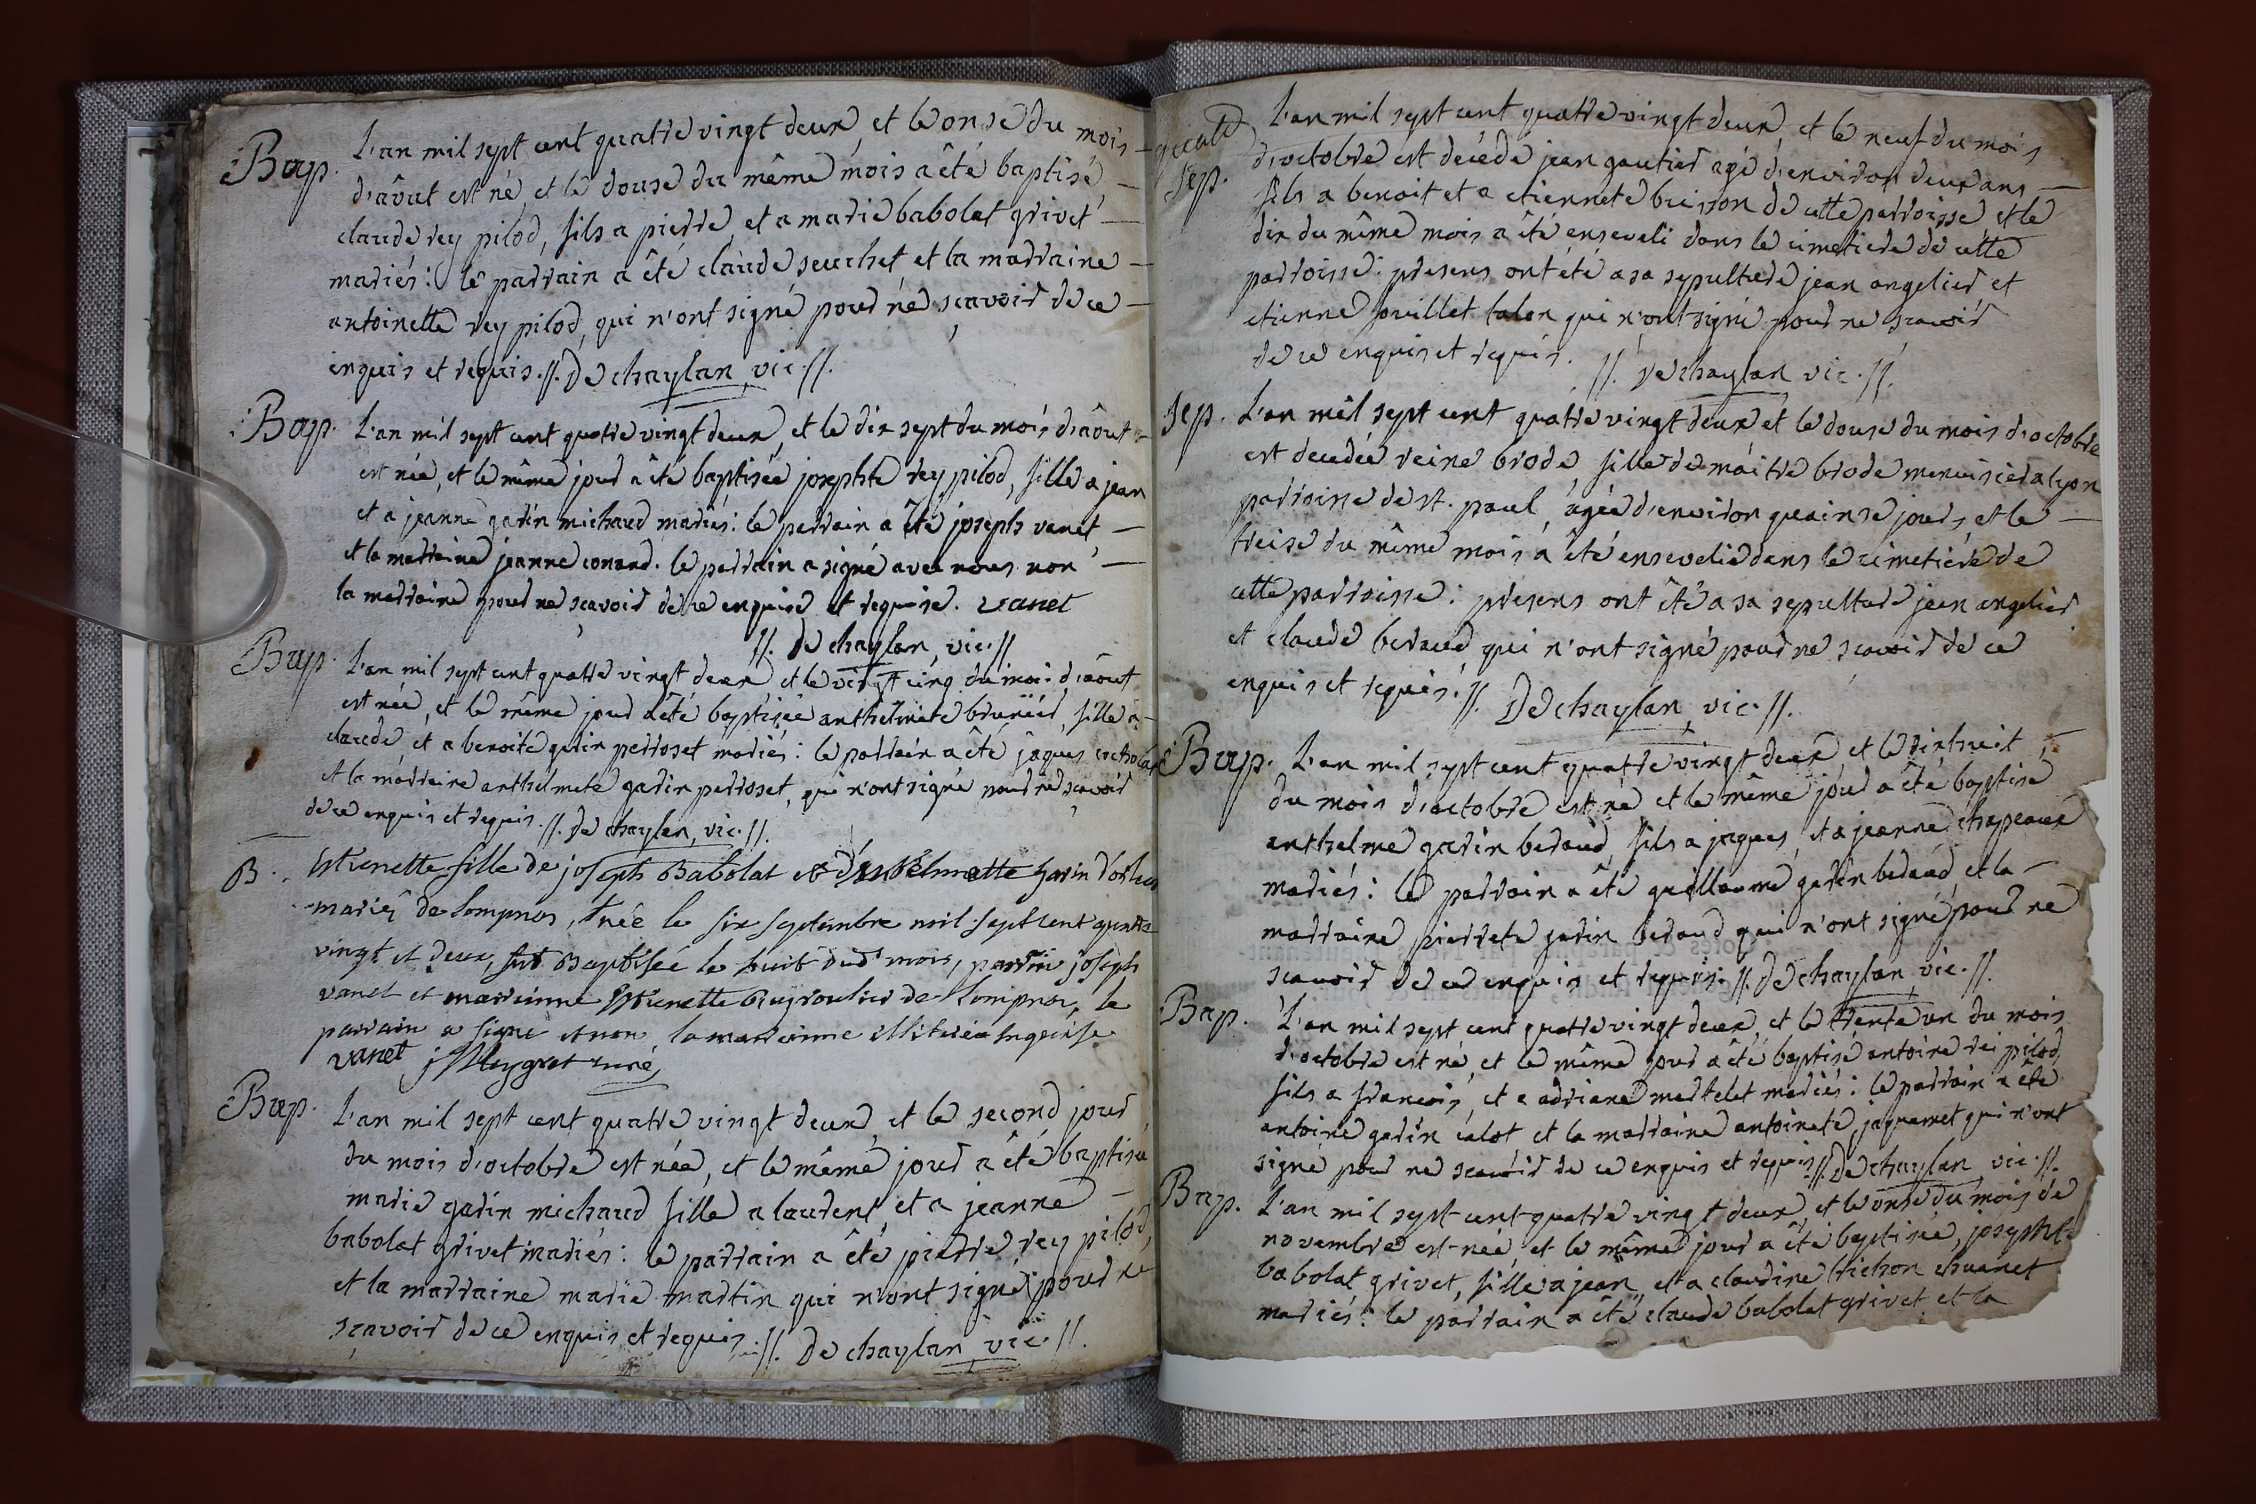 Bap. L'an mil sept cent quatre vingt deux, et le onse du mois
d'aôut est né, et le douse du même mois a été baptisé
claude rey pilod, fils a pierre, et a marie babolat grivet
mariés: le parrain a été claude seuchet et la marraine
antoinette rey pilod, qui n'ont signé pour ne sçavoir de ce
enquis et requis .//. De chaylan vic.//.
Bap. L'an mil sept cent quatre vingt deux, et le dix sept du mois d'aôut
est née, et le même jour a été baptisée josephte rey pilod, fille a jean
et a jeanne garin michaud mariés: le parrain a été joseph vanet
et la marraine jeanne conand. le parrain a signé avec nous non
la marraine pour ne sçavoir de ce enquise et requise. vanet
//. De chaylan vic.//
Bap. L'an mil sept cent quatre vingt deux et le vingt cinq du mois d'aôut
est née, et le même jour a été baptisée anthelmete brunier, fille a
claude et a benoite garin perroset mariés: le parrain a été jaques
et la marraine anthelmete garin perroset, qui n'ont signé pour ne sçavoir
de ce enquis et requis .//. De chaylan, vic.//.
B. fille de joseph Babolat et garin
mariés de Lompnas, née le six septembre mil sept cent quatre
vingt et deux, fut Baptisée le huit dud. mois, parrin joseph
vanet et marrinne de Lompnas, le
parrain a signé et non la marrinne illitérée Enquise
vanet j Meygret curé
Bap. L'an mil sept cent quatre vingt deux, et le second jour
du mois d'octobre est née, et le même jour a été baptisée
marie garin michaud fille a laurent, et a jeanne
babolat grivet mariés: le parrain a été pierre rey pilod,
et la marraine marie martin qui n'ont signé pour ne
sçavoir de ce enquis et requis .//. De chaylan vic.//.
L'an mil sept cent quatre vingt deux, et le neuf du mois
Sep. d'octobre est decédé jean gautier agé d'environ deux ans
fils a benoit et a etiennete buisson de cette parroisse, et le
dix du même mois a été enseveli dans le cimetiere de cette
parroisse: presens ont été a sa sepulture jean angelier et
etienne jouillet talon qui n'ont signé pour ne sçavoir
de ce enquis et requis. //. De chaylan vic.//.
Sep. L'an mil sept cent quatre vingt deux et le douse du mois d'octobre
est decedée reine brode, fille de maitre brode menuisier a lyon
parroisse de st. paul, agée d'environ quainse jours, et le
treise du même mois a été ensevelie dans le cimetiére de
cette parroisse: presens ont été a sa sepulture jean angelier
et claude beraud qui n'ont signé pour ne scavoir de ce
enquis et requis .//. De chaylan, vic.//.
Bap. L'an mil sept cent quatre vingt deux, et le dixhuit
du mois d'octobre est né et le même jour a été baptisé
anthelme garin beraud, fils a jaques, et a jeanne chapeaux
mariés: le parrain a été guillaume garin beraud, et la
marraine pierrete garin beraud qui n'ont signé pour ne
scavoir de ce enquis et requis .//. De chaylan, vic.//.
Bap. L'an mil sept cent quatre vingt deux, et le trente un du mois
d'octobre est né, et le même jour a été baptisé antoine rei pilod,
fils a francois, et a adriane martelet mariés: le parrain a été
antoine garin calot et la marraine antoinete jaquemet qui n'ont
signé pour ne scavoir de ce enquis et requis //. De chaylan, vic.//.
Bap. L'an mil sept cent quatre vingt deux et le onse du mois de
novembre est née, et le même jour a été baptisée, josephte
babolat grivet, fille a jean, et a claudine trichon chuanet
mariés: le parrain a été claude babolat grivet et la